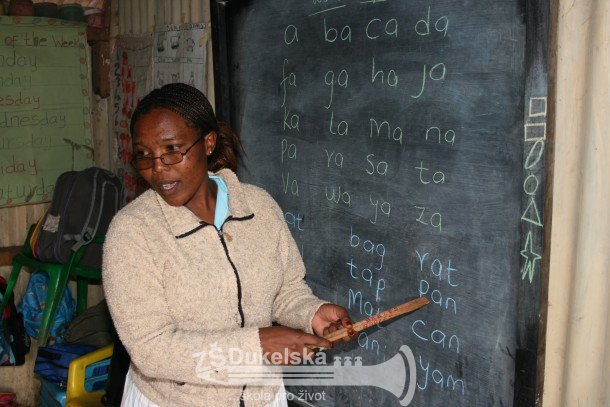 of the Week
day
day
esday
dnesday
hursday
day
a ba ca da
fa ga ha ja
ka la ma na
pa ra sa ta
va wa ya za
at bag rat
tap pan
can
yam
ZŠ Dukelská
škola pro život